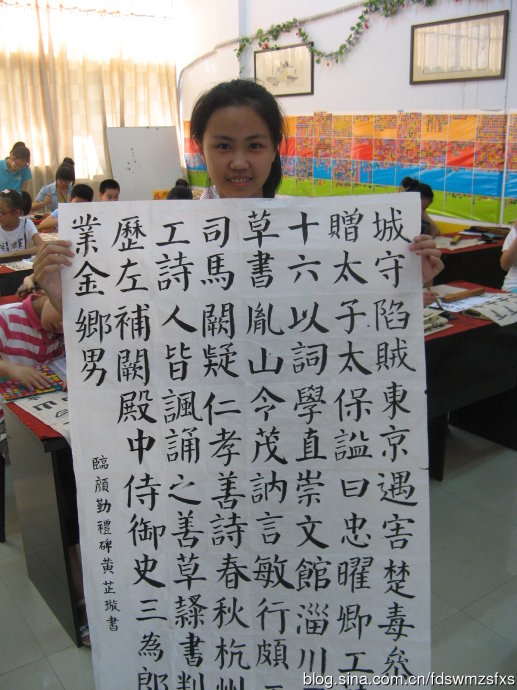 城守陷賊東京遇害楚毒
贈太子太保諡曰忠曜卿工
十六以詞學直崇文館淄川
草書胤山令茂訥言敏行頗
司馬闕疑仁孝善詩春秋杭州
工詩人皆諷誦之善草隸書判
歷左補闕殿中侍御史三為郎
業金鄉男
臨顏勤禮碑黃芷璇書
blog.sina.com.cn/fdswmzsfxs